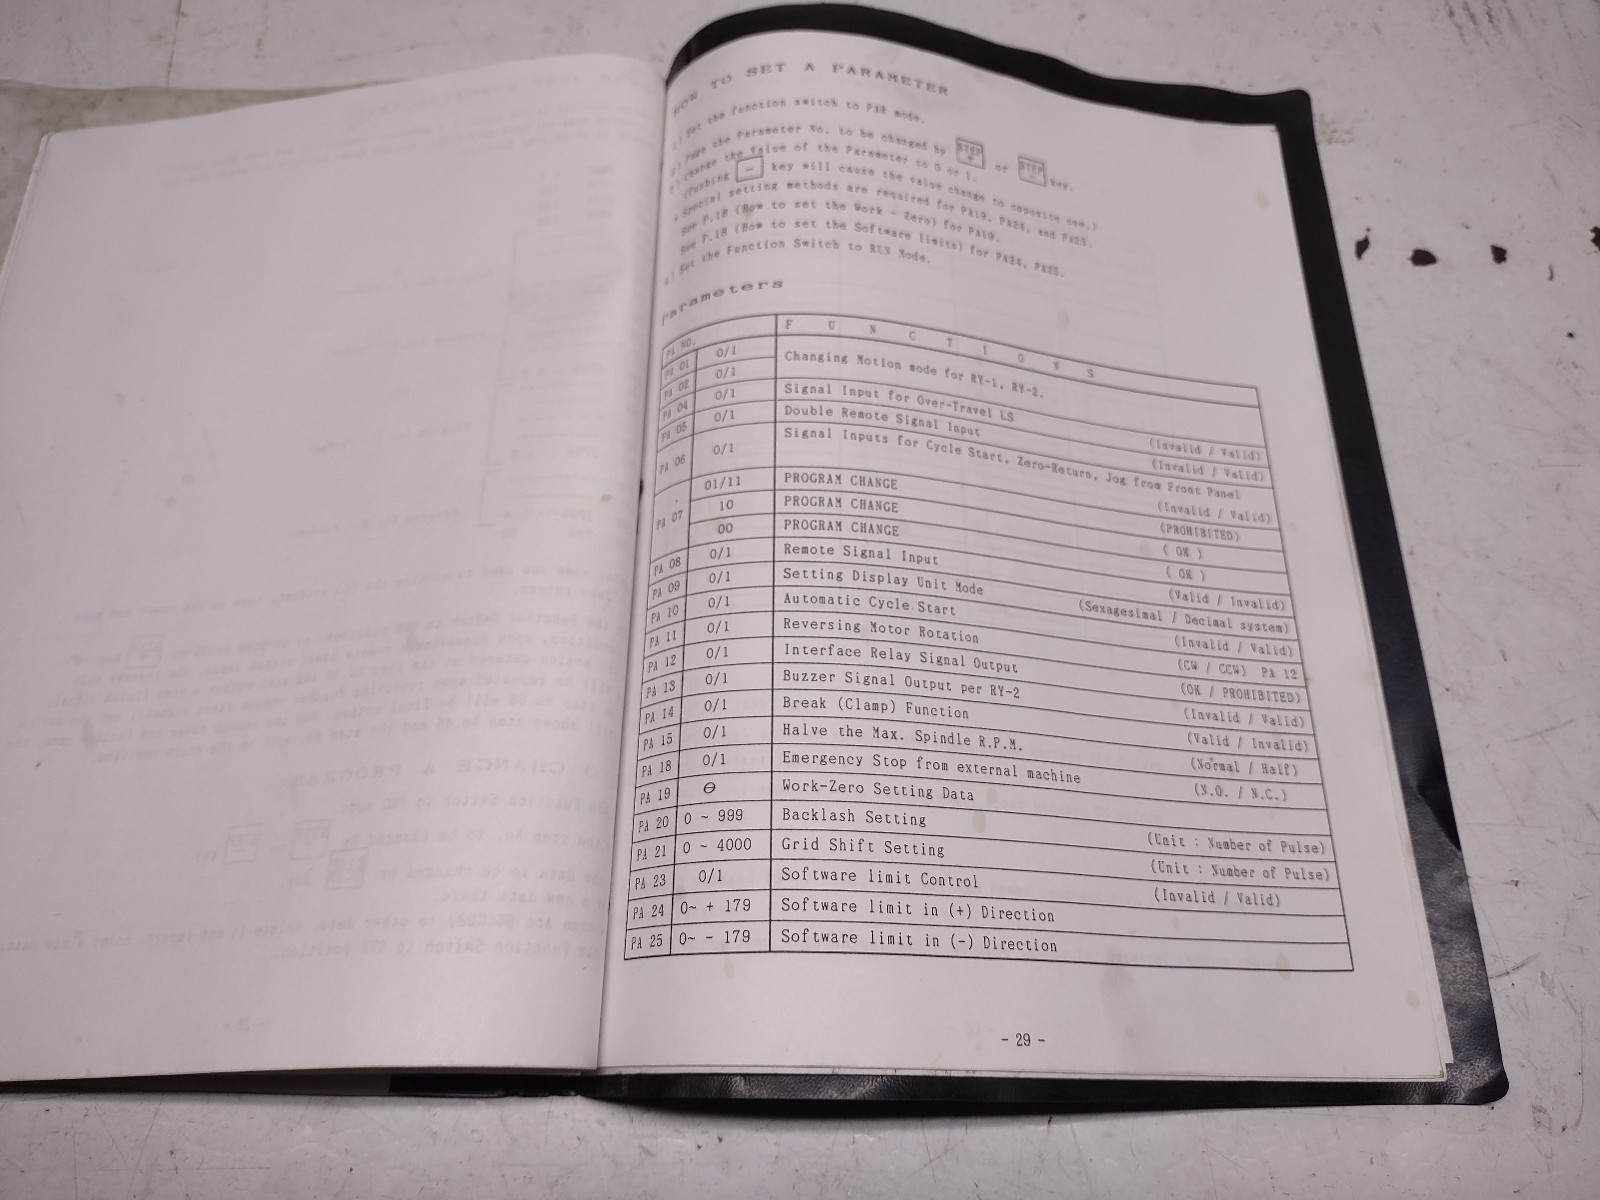 HOW TO SET A PARAMETER
1) Set the function switch to PAR mode.
2) Page the Parameter No. to be changed by STEP + or STEP − key.
3) Change the Value of the Parameter to 0 or 1.
(Pushing − key will cause the value change to opposite one.)
* Special setting methods are required for PA19, PA24, and PA25.
See P.18 (How to set the Work - Zero) for PA19.
See P.18 (How to set the Software limits) for PA24, PA25.
4) Set the Function Switch to RUN Mode.
Parameters
PA NO. FUNCTIONS
PA 01 0/1 Changing Motion mode for RY-1, RY-2.
PA 02 0/1
PA 04 0/1 Signal Input for Over-Travel LS (Invalid / Valid)
PA 05 0/1 Double Remote Signal Input (Invalid / Valid)
PA 06 0/1 Signal Inputs for Cycle Start, Zero-Return, Jog from Front Panel (Invalid / Valid)
PA 07 01/11 PROGRAM CHANGE (PROHIBITED)
10 PROGRAM CHANGE ( OK )
00 PROGRAM CHANGE ( OK )
PA 08 0/1 Remote Signal Input (Valid / Invalid)
PA 09 0/1 Setting Display Unit Mode (Sexagesimal / Decimal system)
PA 10 0/1 Automatic Cycle Start (Invalid / Valid)
PA 11 0/1 Reversing Motor Rotation (CW / CCW) PA 12
PA 12 0/1 Interface Relay Signal Output (OK / PROHIBITED)
PA 13 0/1 Buzzer Signal Output per RY-2 (Invalid / Valid)
PA 14 0/1 Break (Clamp) Function (Valid / Invalid)
PA 15 0/1 Halve the Max. Spindle R.P.M. (Normal / Half)
PA 18 0/1 Emergency Stop from external machine (N.O. / N.C.)
PA 19 θ Work-Zero Setting Data
PA 20 0 ~ 999 Backlash Setting (Unit : Number of Pulse)
PA 21 0 ~ 4000 Grid Shift Setting (Unit : Number of Pulse)
PA 23 0/1 Software limit Control (Invalid / Valid)
PA 24 0~ + 179 Software limit in (+) Direction
PA 25 0~ - 179 Software limit in (-) Direction
- 29 -